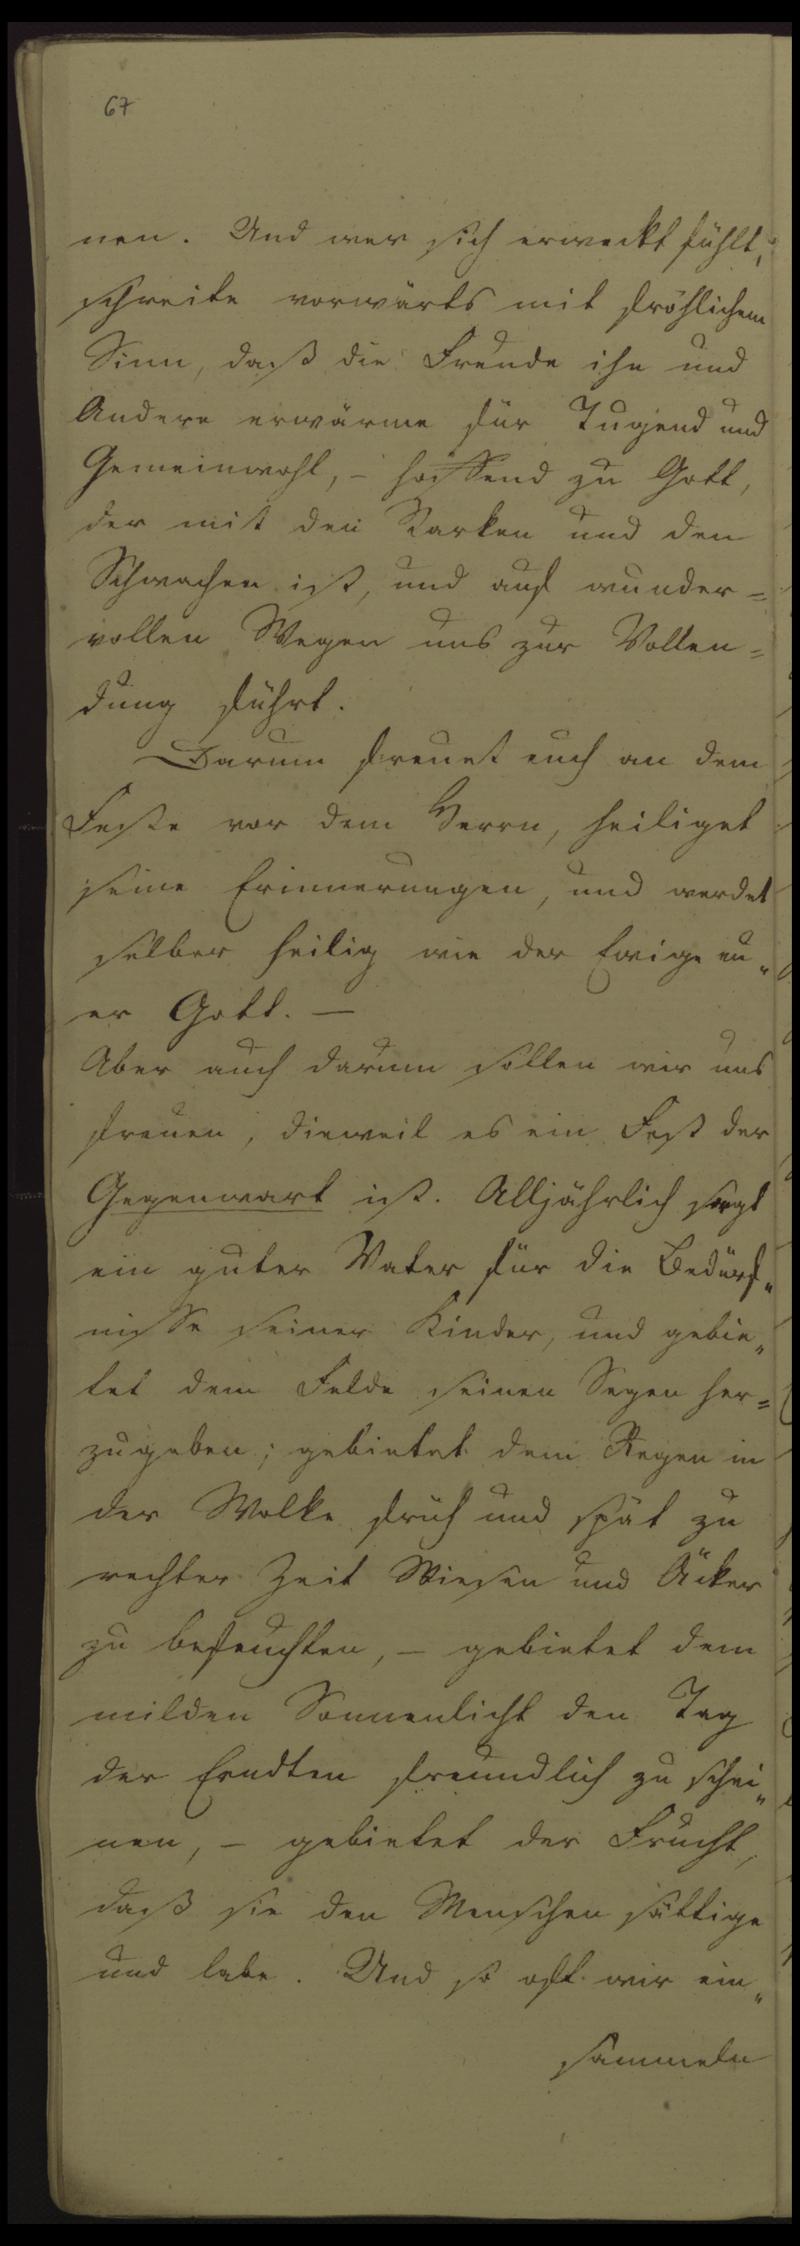 67
nen. Und wer sich erweckt fühlt,
schreite vorwärts mit fröhlichem
Sinn, daß die Freude ihn und
Andere erwärme für Tugend und
Gemeinwohl, – hoffend zu Gott,
der mit den Starken und den
Schwachen ist, und auf wunder=
vollen Wegen uns zur Vollen=
dung führt.
Darum freuet euch an dem
Feste vor dem Herrn, heiliget
seine Erinnerungen, und werdet
selber heilig wie der Ewige eu„
er Gott. —
Aber auch darum sollen wir uns
freuen, dieweil es ein Fest der
Gegenwart ist. Alljährlich sorgt
ein guter Vater für die Bedürf„
nisse seiner Kinder, und gebie„
tet dem Felde seinen Segen her=
zugeben; gebietet dem Regen in
der Wolke früh und spät zu
rechter Zeit Wiesen und Äcker
zu befeuchten, – gebietet dem
milden Sonnenlicht den Tag
der Erndten freundlich zu schei„
nen, – gebietet der Frucht,
daß sie den Menschen sättige
und labe. Und so oft wir ein„
sammeln